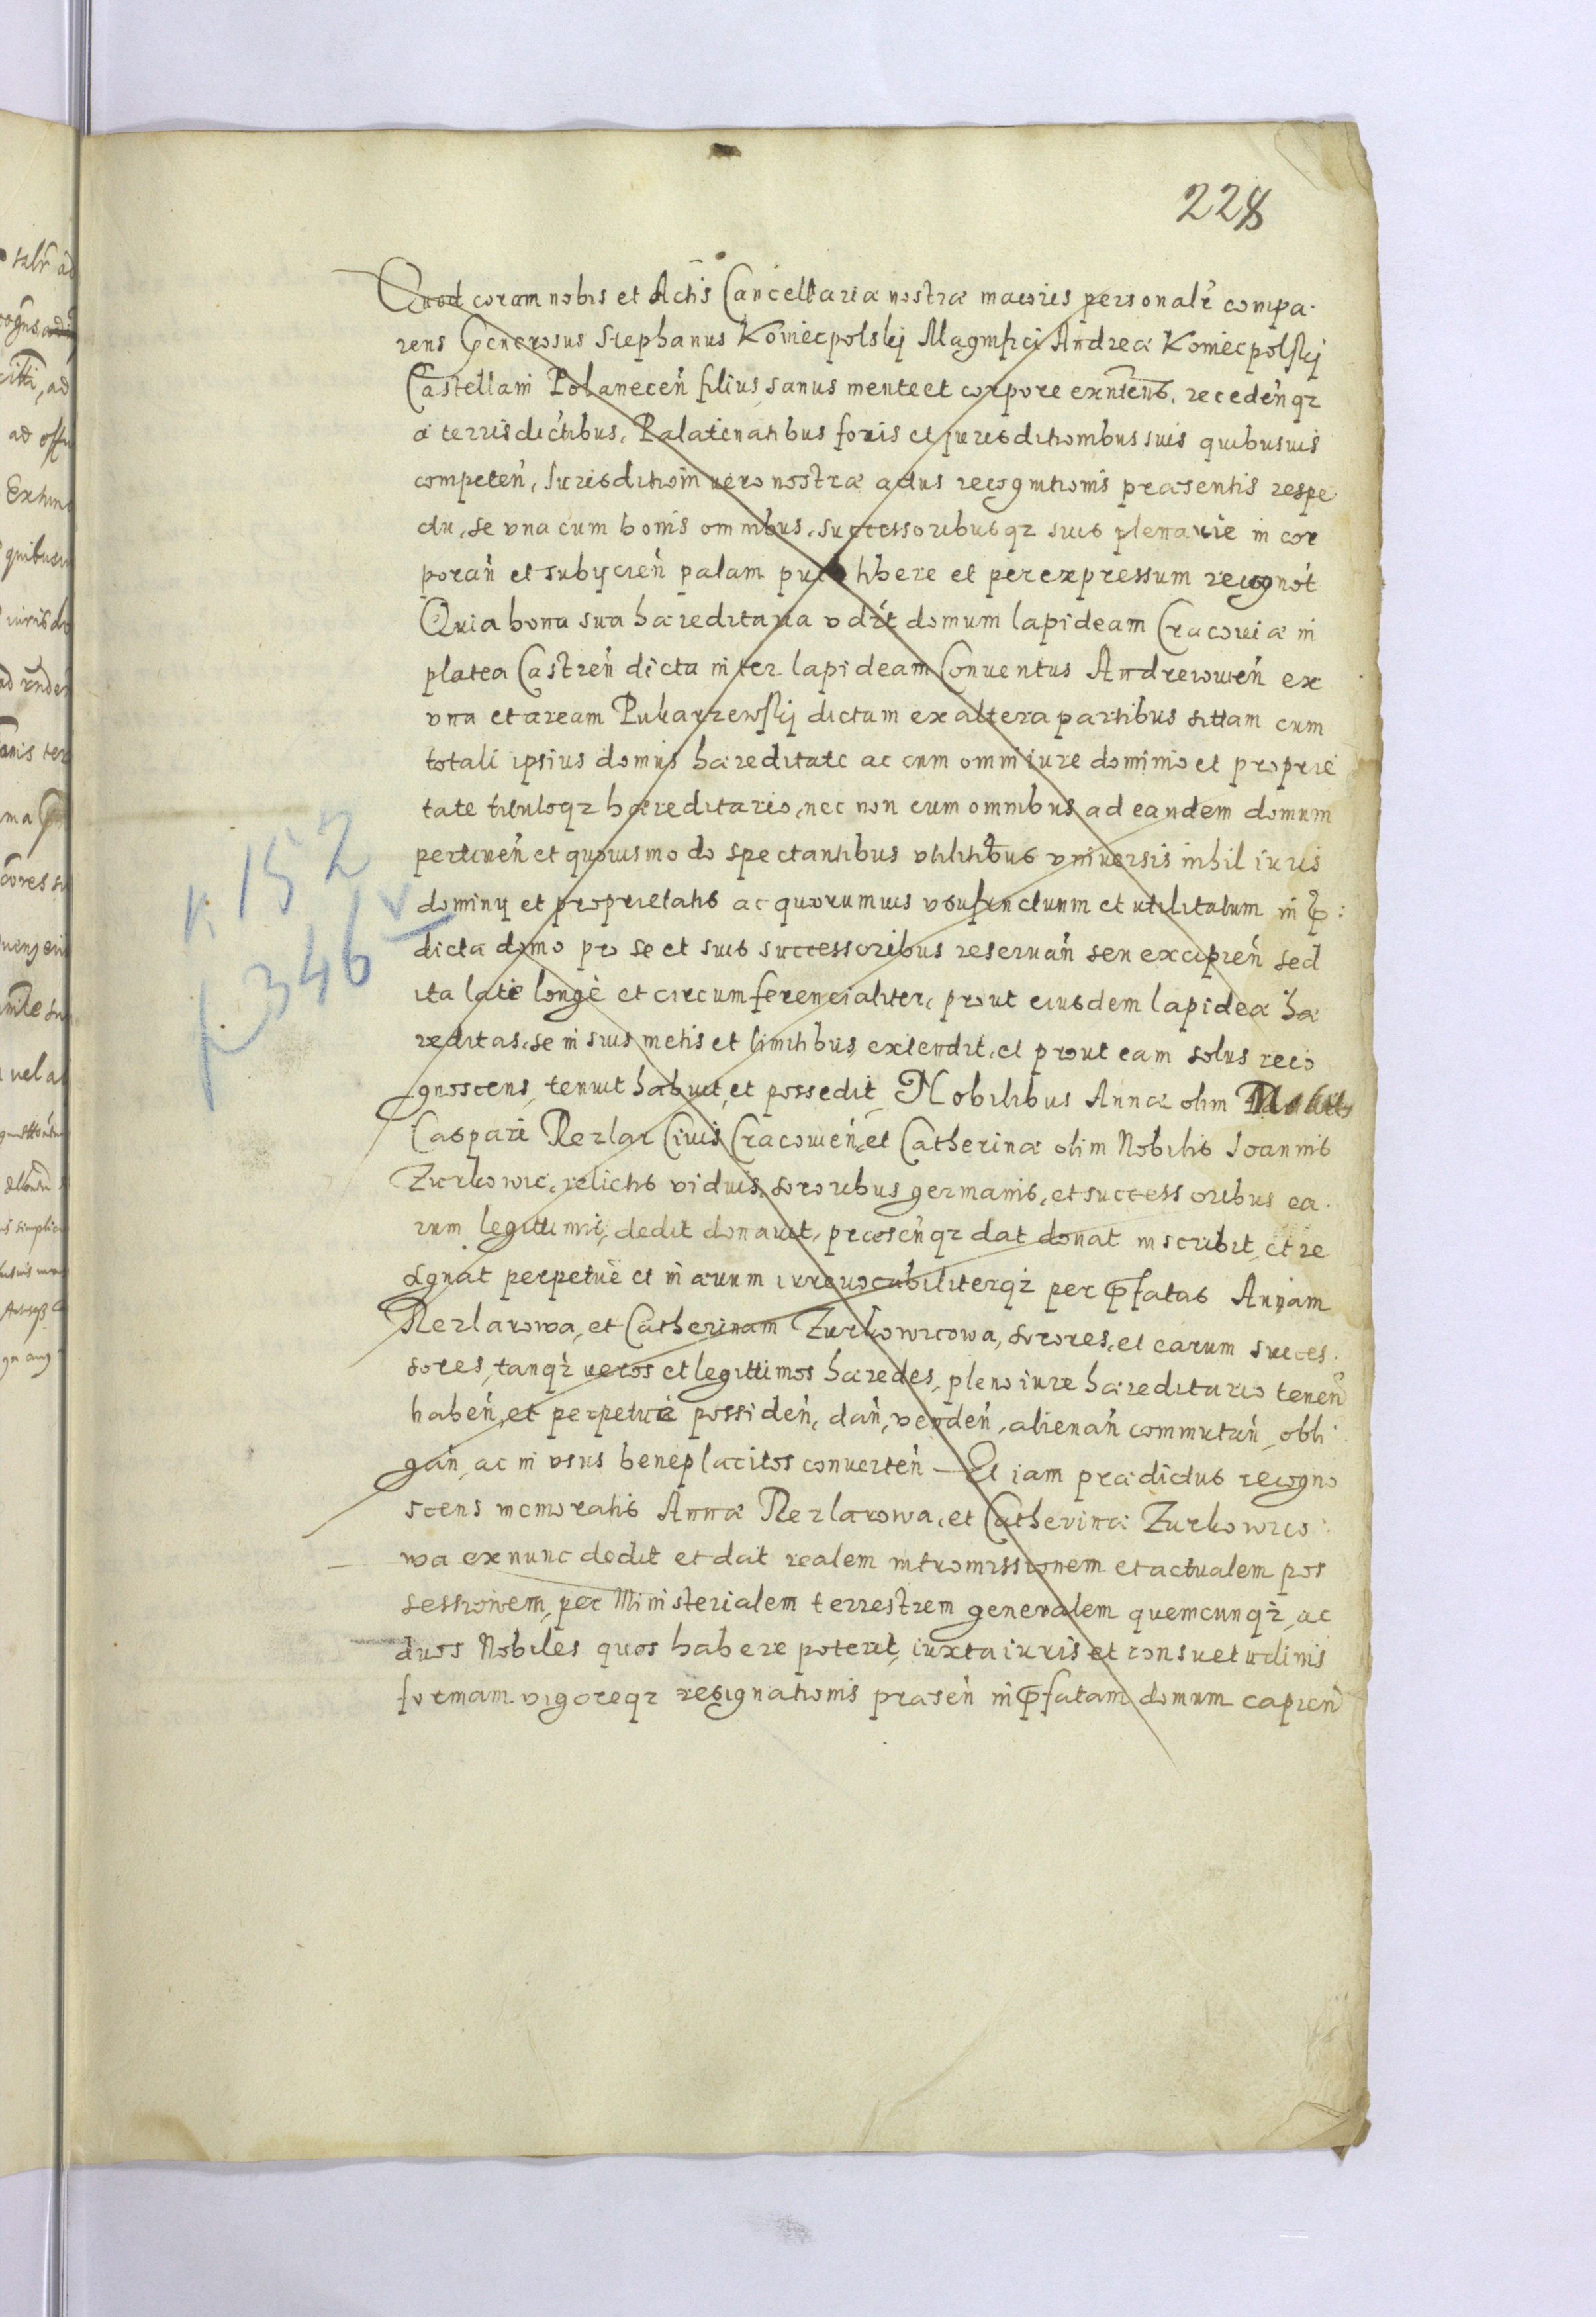 228
Quod coram nobis et Actis Cancellariæ nostræ maioris personalr̃ compa-
rens Generosus Stephanus Koniecpolskij Magnifici Andreæ Koniecpolskij
Castellani Polanecen̄ filius, sanus mente et corpore existens, receden̄qz
à terris dictibus, Palatinatibus foris et iurisditionibus suis quibusuis
competen̄, Iurisditioni vero nostræ actus recognitionis præsentis respe
ctu, se vna cum bonis omnibus, successoribusqz suis plenarie in cor
poran̄ et subÿcien̄ palam libere et per expressum recognōt
Quia bona sua hæreditaria vdt domum lapideam Cracouiæ in
platea Castren̄ dicta inter lapideam Conuentus Andreiouien̄ ex
vna et aream Pukarzewskij dictam ex altera partibus sittam cum
totali ipsius domus hæreditate ac cum omni iure dominio et proprie
tate tituloqz hæreditario, nec non cum omnibus ad eandem domum
pertinen̄ et quouismodo spectantibus vtilitibus vniuersis nihil iuris
dominÿ et proprietatis ac quorumuis vsufructuum et utilitatum in p̄:
dicta domo pro se et suis successoribus reseruan̄ seu excipien̄ sed
ita latè longè et circumferencialiter, prout eiusdem lapideæ hæ
reditas, se in suis metis et limitibus extendit, et prout eam solus reco
gnoscens, tenuit habuit, et possedit, Nobilibus Annæ olim Nobilis
Caspari Rezlar Ciuis Cracouien̄, et Catherinæ olim Nobilis Ioannis
Zurkowic, relictis viduis, sororibus germanis, et successoribus ea-
rum legittimis, dedit donauit, præsen̄qz dat donat inscribit, et re
signat perpetuè et in æuum irreuocabiliterqz per p̄fatas Annam
Rezlarowa, et Catherinam Zurkowicowa, sorores, et earum succes-
sores, tanqz veros et legittimos hæredes, pleno iure hæreditario tenen̄
haben̄, et perpetuè possiden̄, dan̄, venden̄, alienan̄ commutan̄, obli-
gan̄, ac in vsus beneplacitos conuerten̄ — Et iam prædictus recogno
scens memoratis Annæ Rezlarowa, et Catherinæ Zurkowico-
wa ex nunc dedit et dat realem intromissionem et actualem pos
sessionem, per Ministerialem terrestrem generalem quemcunqz, ac
duos Nobiles quos habere poterit, iuxta iuris et consuetudinis
formam vigoreqz resignationis præsen̄ in p̄fatam domum capien̄
k 152
f 346 v